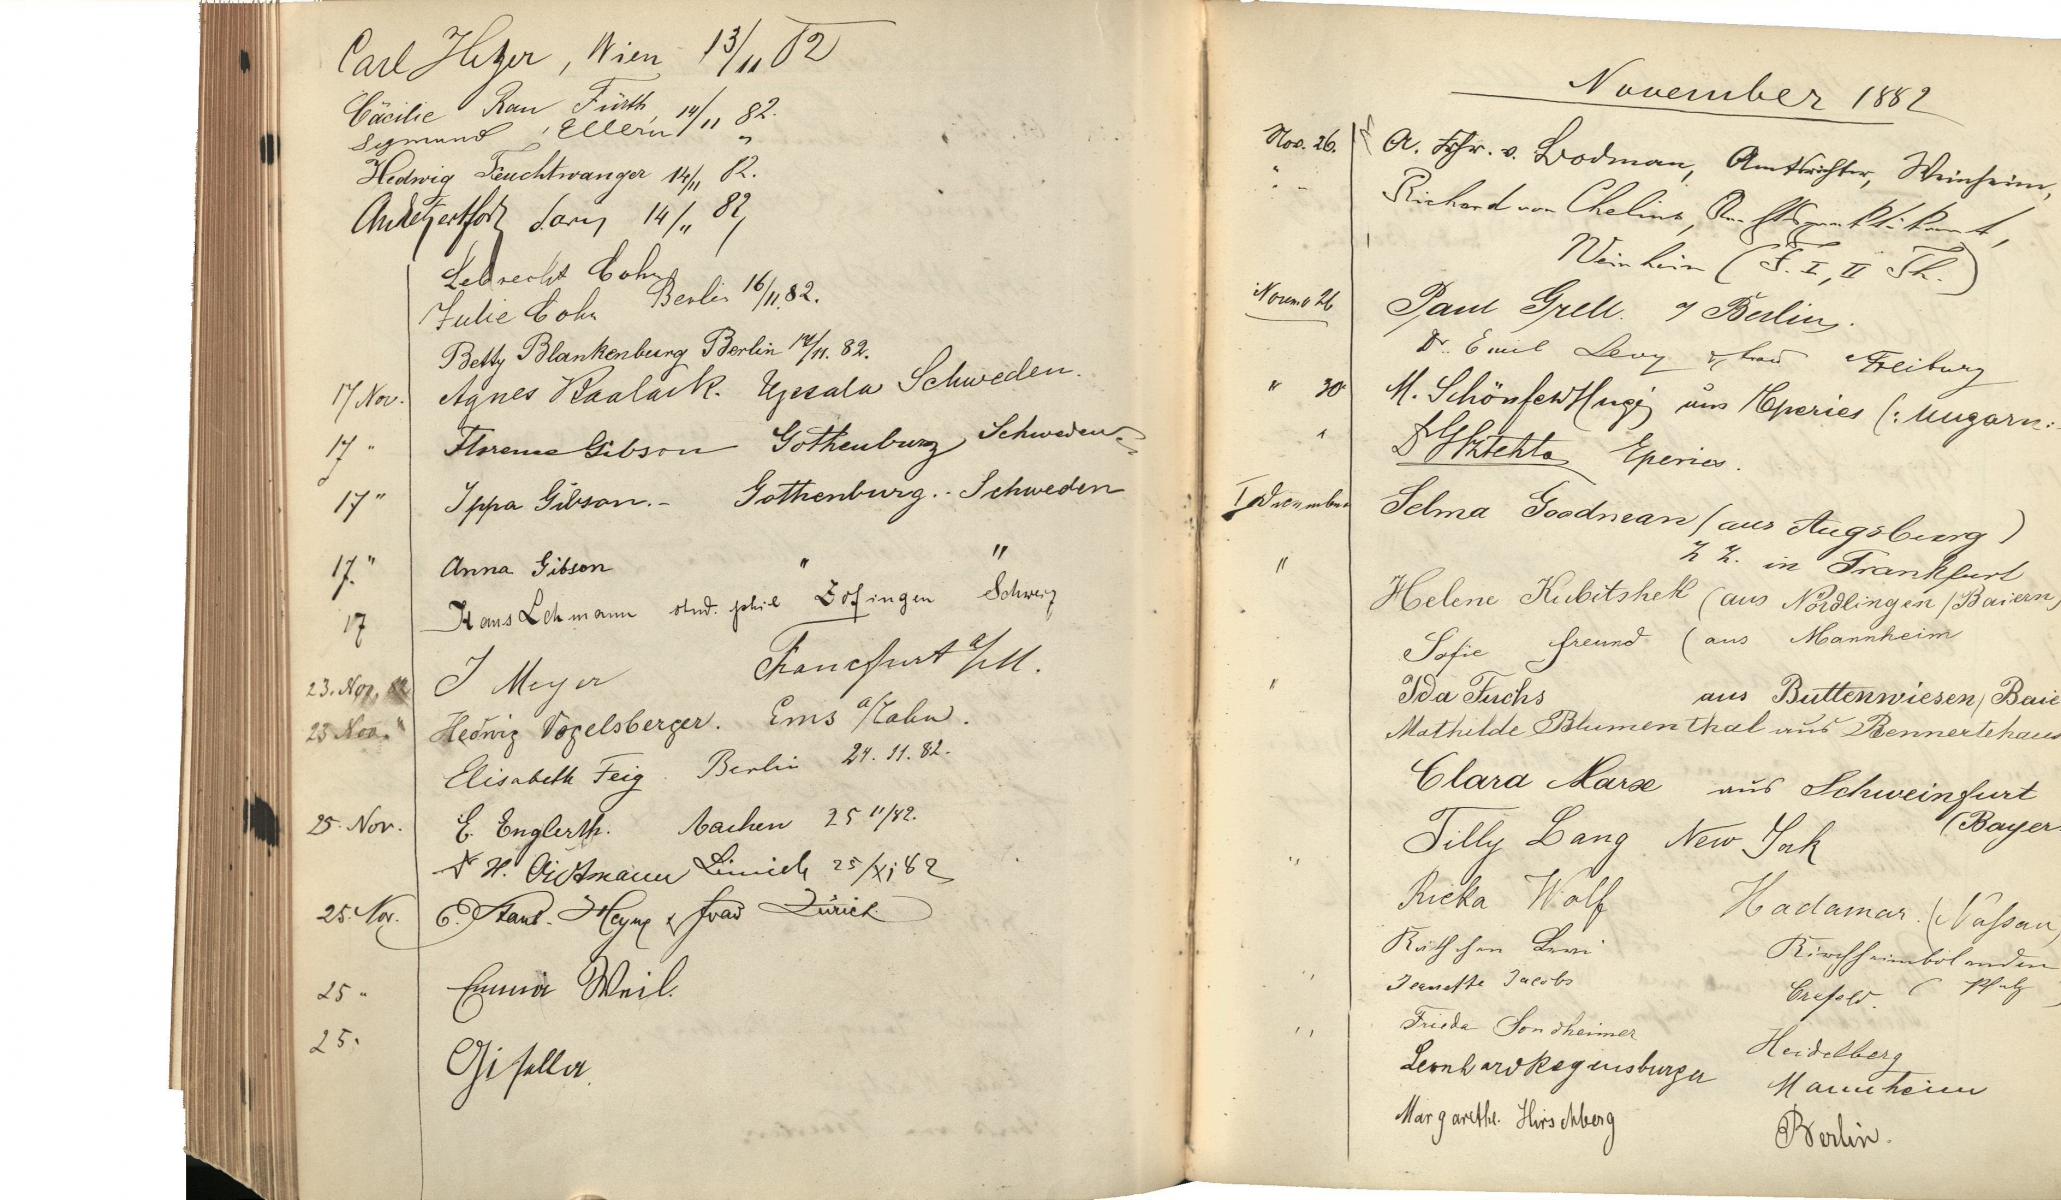 Carl Heyer, Wien 13/11 82
Cäcilie Rau Fürth 14/11 82.
Sigmund Ellern "
Hedwig Feuchtwanger 14/11 82.
14/11 82
Lebrecht Cohn
Julie Cohn Berlin 16/11.82.
Betty Blankenburg Berlin /11. 82.
17 Nov. Agnes Upsala Schweden.
17 " Florence Gibson Gothenburg Schweden
17 " Ippa Gibson.- Gothenburg.- Schweden
17. " Anna Gibson " "
17 Hans Lehmann stud. phil Zofingen Schweiz
23. Nov. 82 J Meyer Francfurt a/M.
23 Nov. " Hedwig Vogelsberger. Ems a/Lahn.
Elisabeth Feig. Berlin 24. 11. 82.
25. Nov. E. Englerth. Aachen 25 11/82.
Dr H. Linnich 25/XI 82
25. Nov. & Frau Zürich
25 " Emma Weil.
25.
November 1882
Nov. 26. A. Frhr. v. Bodman, Amtsrichter, Weinheim,
Richard von Chelius, Rechtspraktikant,
Weinheim (F. I, II Th.)
26 Paul Grell. Berlin.
Dr. Emil Levy & Frau Freiburg
" 30 M. aus Eperies (: Ungarn:
Eperies.
1 December Selma Goodman (aus Augsburg)
z Z. in Frankfurt
" Helene Kubitshek (aus Nördlingen/Baiern)
Sofie Freund (aus Mannheim
" Ida Fuchs aus Buttenwiesen, Baie
Mathilde Blumenthal aus
Clara Marx aus Schweinfurt
(Bayer
Tilly Lang New York
" Ricka Wolf Hadamar. (Nassau)
Levi Kirchheimbolanden
(Pfalz)
" Jeanette Jacobs Crefeld.
" Frieda Sondheimer Heidelberg
Leonhard Regensburger Mannheim
Margarethe Hirschberg Berlin.